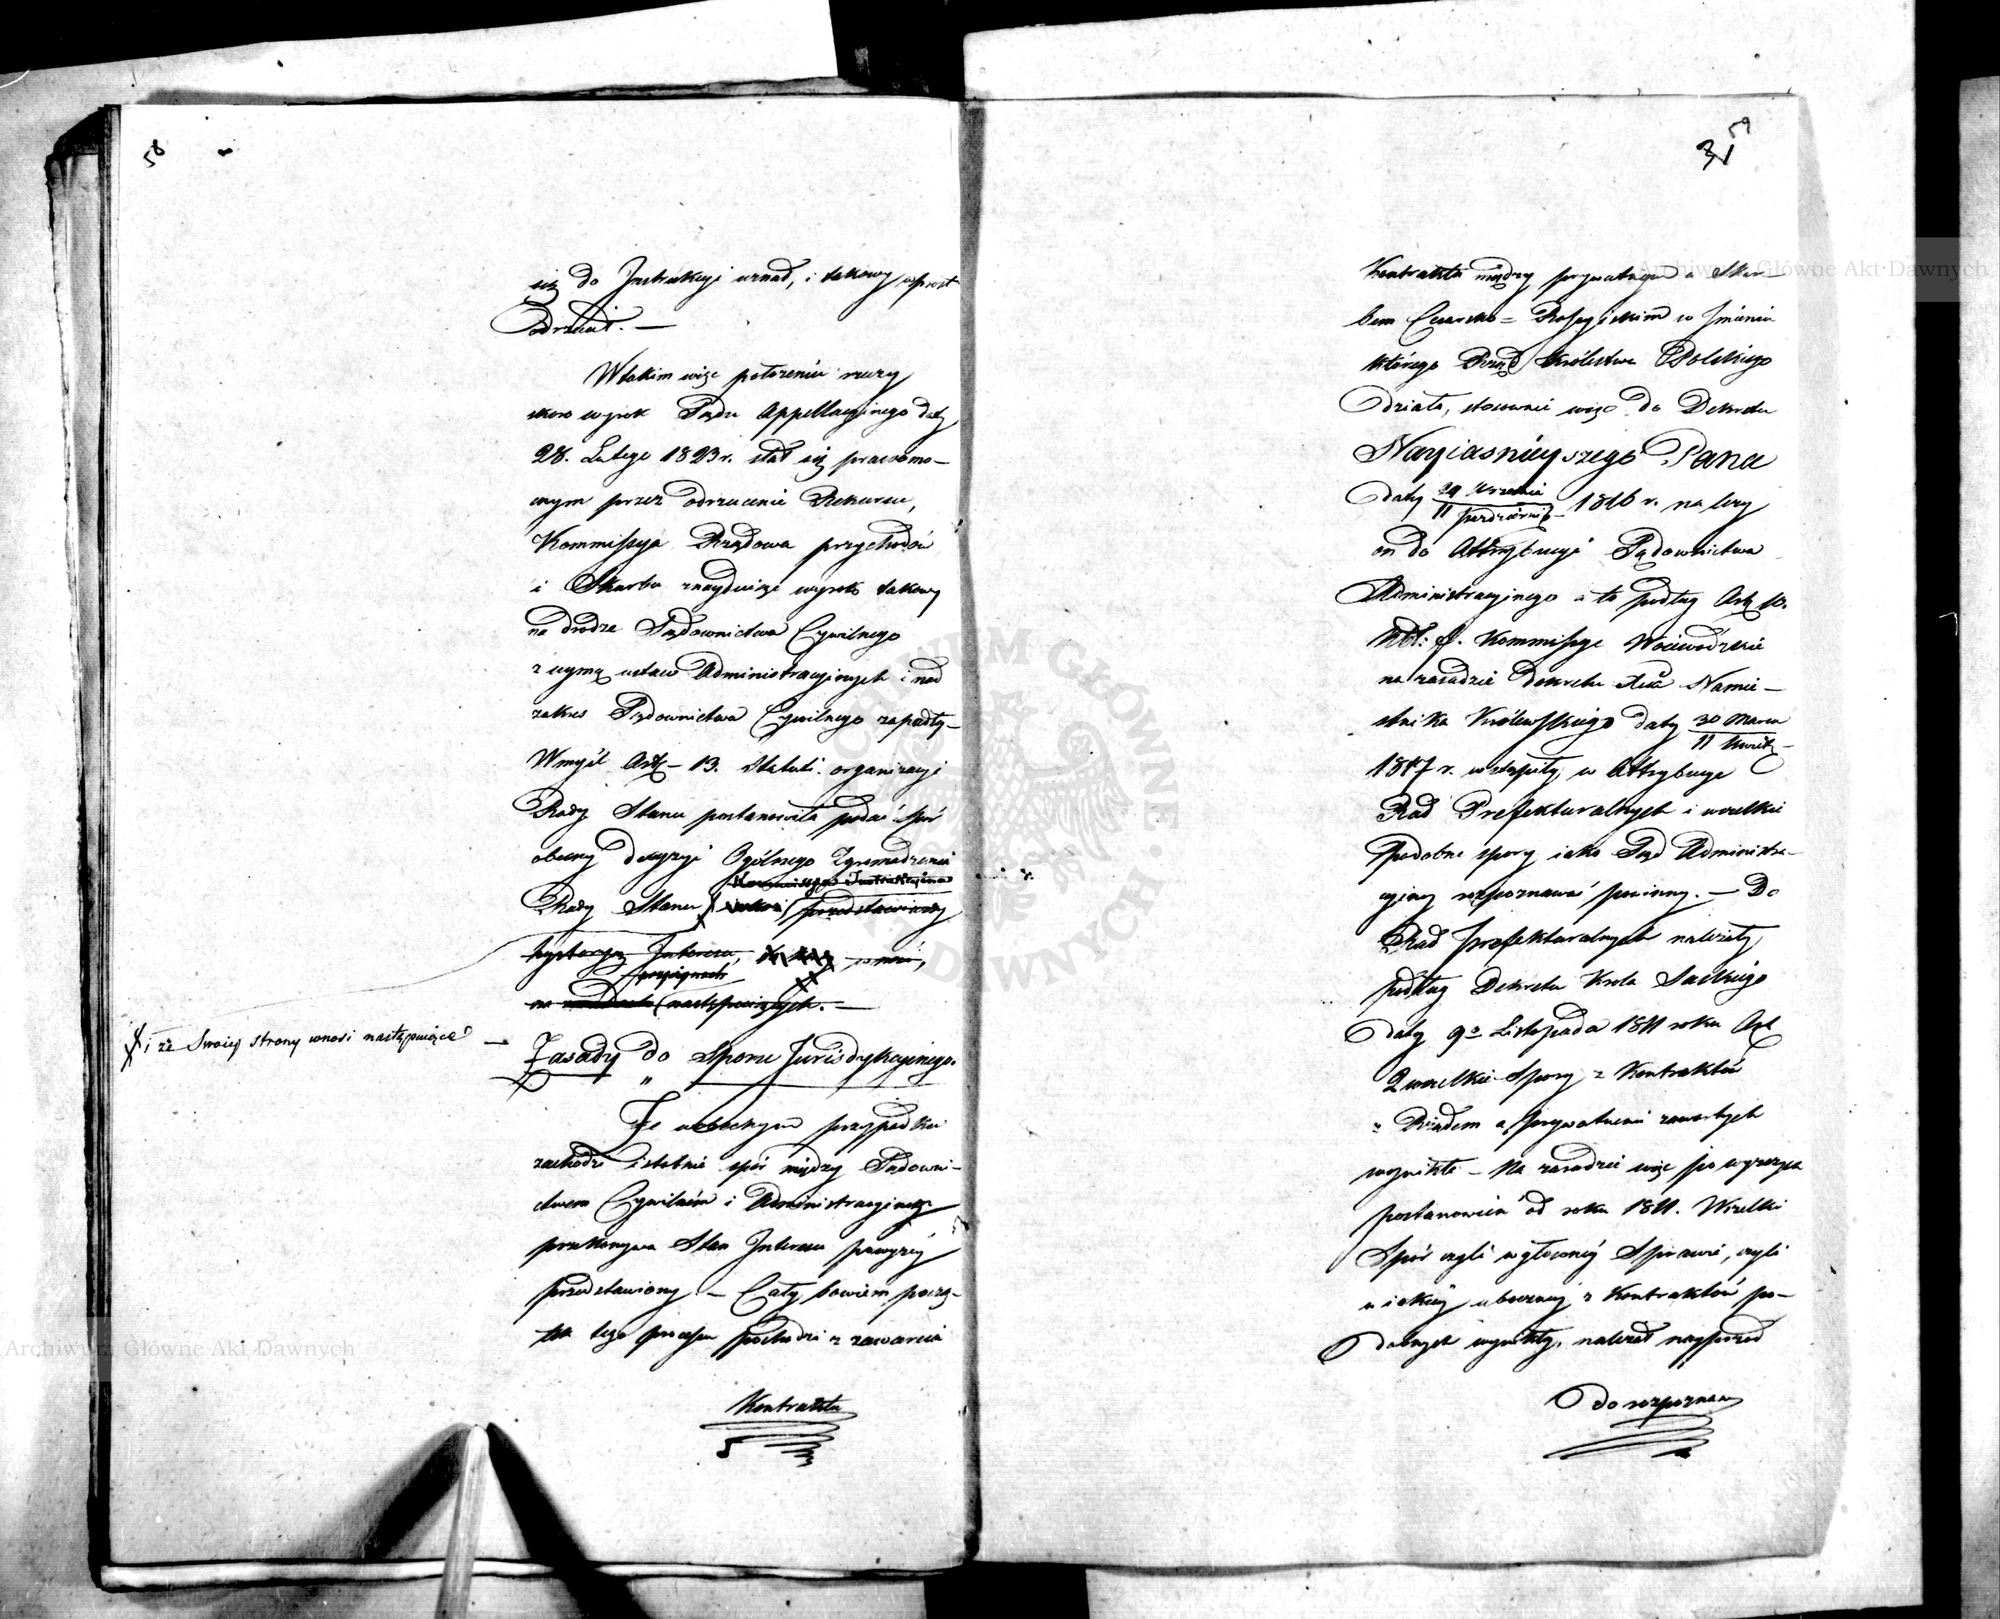 58
się do Instrukcyi uznał, i takowy wprost
odrzucił. —
W takim więc położeniu rzeczy
skoro wyrok Sądu Appellacyjnego daty
28. Lutego 1823 r. stał się prawomo-
cnym przez odrzucenie Rekursu,
Kommissya Rządowa przychodów
i Skarbu znayduiąc wyrok takowy
na drodze Sądownictwa Cywilnego
z uymą ustaw Administracyjnych i nad
zakres Sądownictwa Cywilnego zapadły —
W myśl Art — 13. Statut. organizacyi
Rady Stanu postanowiła podać spór
obecny decyzyi Ogólnego Zgromadzenia
Kommissya Instrukcyjna
Rady Stanu przedstawiwszy
hystoryą Interesu, wnosi,
na następuiących. —
i ze Swoiey strony wnosi następuiące
Zasady do Sporu Jurisdykcyinego.
Że w obecnym przypadku
zachodzi istotnie spór między Sądowni-
ctwem Cywilném i Administracyjnem
przekonywa Stan Interesu powyżéy
przedstawiony — Cały bowiem począ-
tek tego processu pochodzi z zawarcia
Kontraktu
59
31
Kontraktu między prywatnym a Skar-
bem Cesarsko = Rossyiskim w Imieniu
którego Rząd Królestwa Polskiego
działa, stosownie więc do Dekretu
Nayiaśnieyszego Pana
daty 29 Września / 11 Październik 1816 r. należy
on do Attrybucyi Sądownictwa
Administracyjnego a to podług Art. 10.
Kommissye Woiewódzkie
na zasadzie Dekretu Xcia Namie-
stnika Królewskiego daty 30 Marca / 11 Kwiet
1817 r. wstąpiły w Attrybucye
Rad Prefekturalnych i wszelkie
podobne spory iako Sąd Administra-
cyjny rozpoznawać powinny. — Do
Rad prefekturalnych należały
podług Dekretu Króla Saskiego
daty 9o Listopada 1811 roku Art
2 wszelkie Spory z Kontraktów
z Rządem a prywatnemi zawartych
wynikłe — Na zasadzie więc powyższych
postanowień od roku 1811. Wszelki
Spór czyli w głównéy Sprawie, czyli
w iakiéy uboczney z Kontraktów po-
dobnych wynikły, należał nayprzód
do rozpoznan